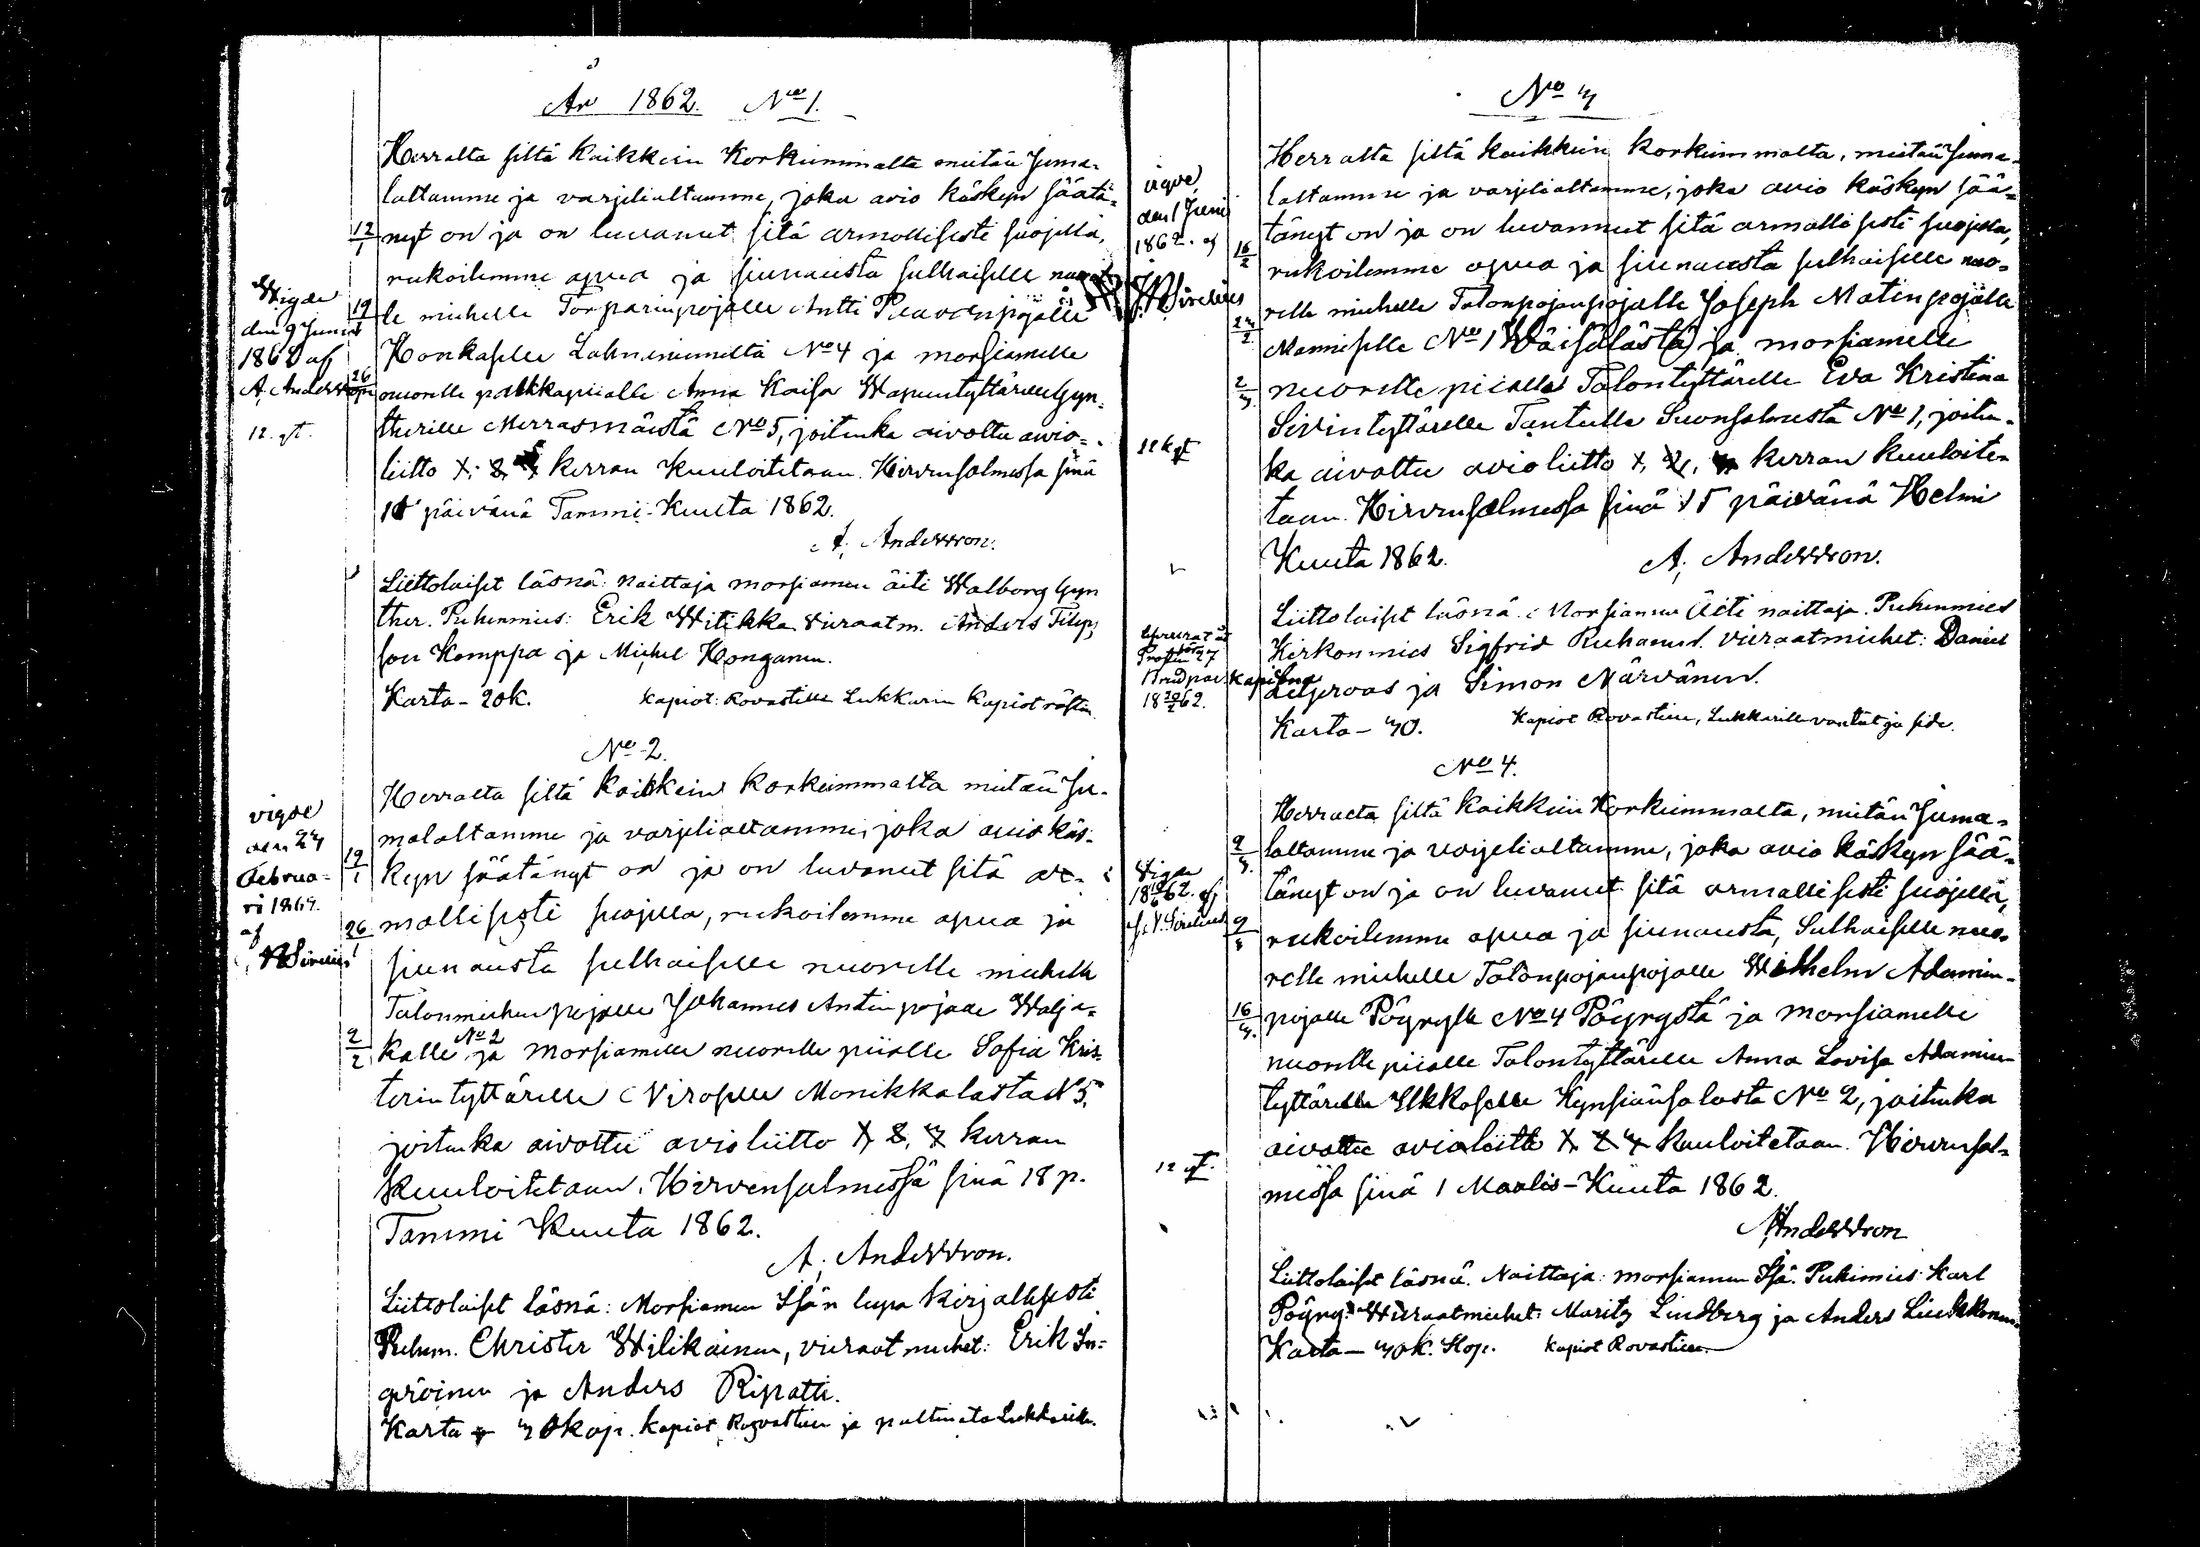 År 1862. No 1.
Herralta siltä kaikkein korkeimmalta meitän Juma-
laltamme ja varjelialtamme, joka avio käskyn säätä-
12/1 nyt on ja on luvannut sitä armollisesti suojella,
rukoilemme apua ja siunausta sulhaiselle nuorel-
19/1 le miehelle Torparinpojalle Antti Paavonpojalle
Honkaselle Lahnaniemeltä No 4 ja morsiamelle
26/1 nuorelle palkkapiialle Anna Kaisa Wapuntyttärelle Gyn-
therille Merrasmäestä No 5, joitenka aivottu avio-
liitto 1. 2. 3 kerran kuuloitetaan. Hirvensalmessa sinä
11 päivänä Tammi-Kuuta 1862.
A. Andersson.
Wigde
den 9 Junii
1862 af
A. Andersson
12. gt.
Liittolaiset läsnä: naittaja morsiamen äiti Walborg Gyn
ther. Puhemies: Erik Witikka vieraatm. Anders Filip,
son Komppa ja Michel Honganen.
Karta - 20k. kapiot: Rovastille Lukkarin kapiot rästin
No 2.
Herralta siltä kaikkein korkeimmalta meitän Ju-
malaltamme ja varjelialtamme, joka avio käs-
19/1 kyn säätänyt on ja on luvanut sitä ar-
26/1 mollisesti suojella, rukoilemme apua ja
siunausta sulhaiselle nuorelle miehelle
Talonmiehen pojalle Johannes Antinpojalle Walja-
2/2 kalle No 2 ja morsiamelle nuorelle piialle Sofia Kris
terintyttärelle Niroselle Monikkalasta No 5,
joitenka aivottu avioliitto 1, 2, 3 kerran
kuuloitetaan. Hirvensalmessa sinä 18 p.
Tammi Kuuta 1862.
A. Andersson.
vigde
den 23
Februa-
ri 1862.
af
Sirelius
Liittolaiset läsnä: Morsiamen Isän lupa kirjallisesti
Puhem. Christer Wilikainen, vieraat miehet: Erik In-
geröinen ja Anders Ripatti.
Karta 30 kop. kapiot Rovastille ja paltinata Lukkarille.
No 3
Herralta siltä kaikkein korkeimmalta, meitän Juma-
laltamme ja varjelialtamme, joka avio käskyn sää-
tänyt on ja on luvannut sitä armollisesti suojella,
16/2 rukoilemme apua ja siunausta sulhaiselle nuo-
relle miehelle Talonpojanpojalle Joseph Matinpojalle
23/2 Manniselle No 1 Wäisälästä ja morsiamelle
2/3 nuorelle piialle Talontyttärelle Eva Kristina
Sivintyttärelle Tantulle Suonsalmesta No 1, joiten-
ka aivottu avioliitto 1, 2, 3 kerran kuuloite-
taan. Hirvensalmessa sinä 15 päivänä Helmi
Kuuta 1862. A. Andersson.
vigde
den 1 Junii
1862. af
Sirelius
12 k gt
Liittolaiset läsnä. Morsiamen Äiti naittaja. Puhemies
Kirkonmies Sigfrid Ruhanen. vieraatmiehet: Daniel
Lilljeroos ja Simon Närvänen.
Karta - 30. Kapiot Rovastille, Lukkarille vantut ja side.
No 4.
Herralta siltä kaikkein korkeimmalta, meitän Juma-
2/3 laltamme ja varjelialtamme, joka avio käskyn sää-
tänyt on ja on luvanut sitä armollisesti suojella,
9/3 rukoilemme apua ja siunausta, Sulhaiselle nuo-
relle miehelle Talonpojanpojalle Wilhelm Adamin-
16/3 pojalle Pöyrylle No 4 Pöyrystä ja morsiamelle
nuorelle piialle Talontyttärelle Anna Lovisa Adamin-
tyttärelle Ukkoselle Kynsiänsalosta No 2, joitenka
aivottu avioliitto 1 2 3 kuuloitetaan. Hirvensal-
messa sinä 1 Maalis-Kuuta 1862.
A. Andersson
Vigde
1862. af
Sirelius
12 gt.
Liittolaiset läsnä. Naittaja: morsiamen Isä. Puhimies: Karl
Pöyry. Wieraatmiehet: Maritz Lindberg ja Anders Liukkonen.
Karta - 30 k. Kop. kapiot Rovastille.